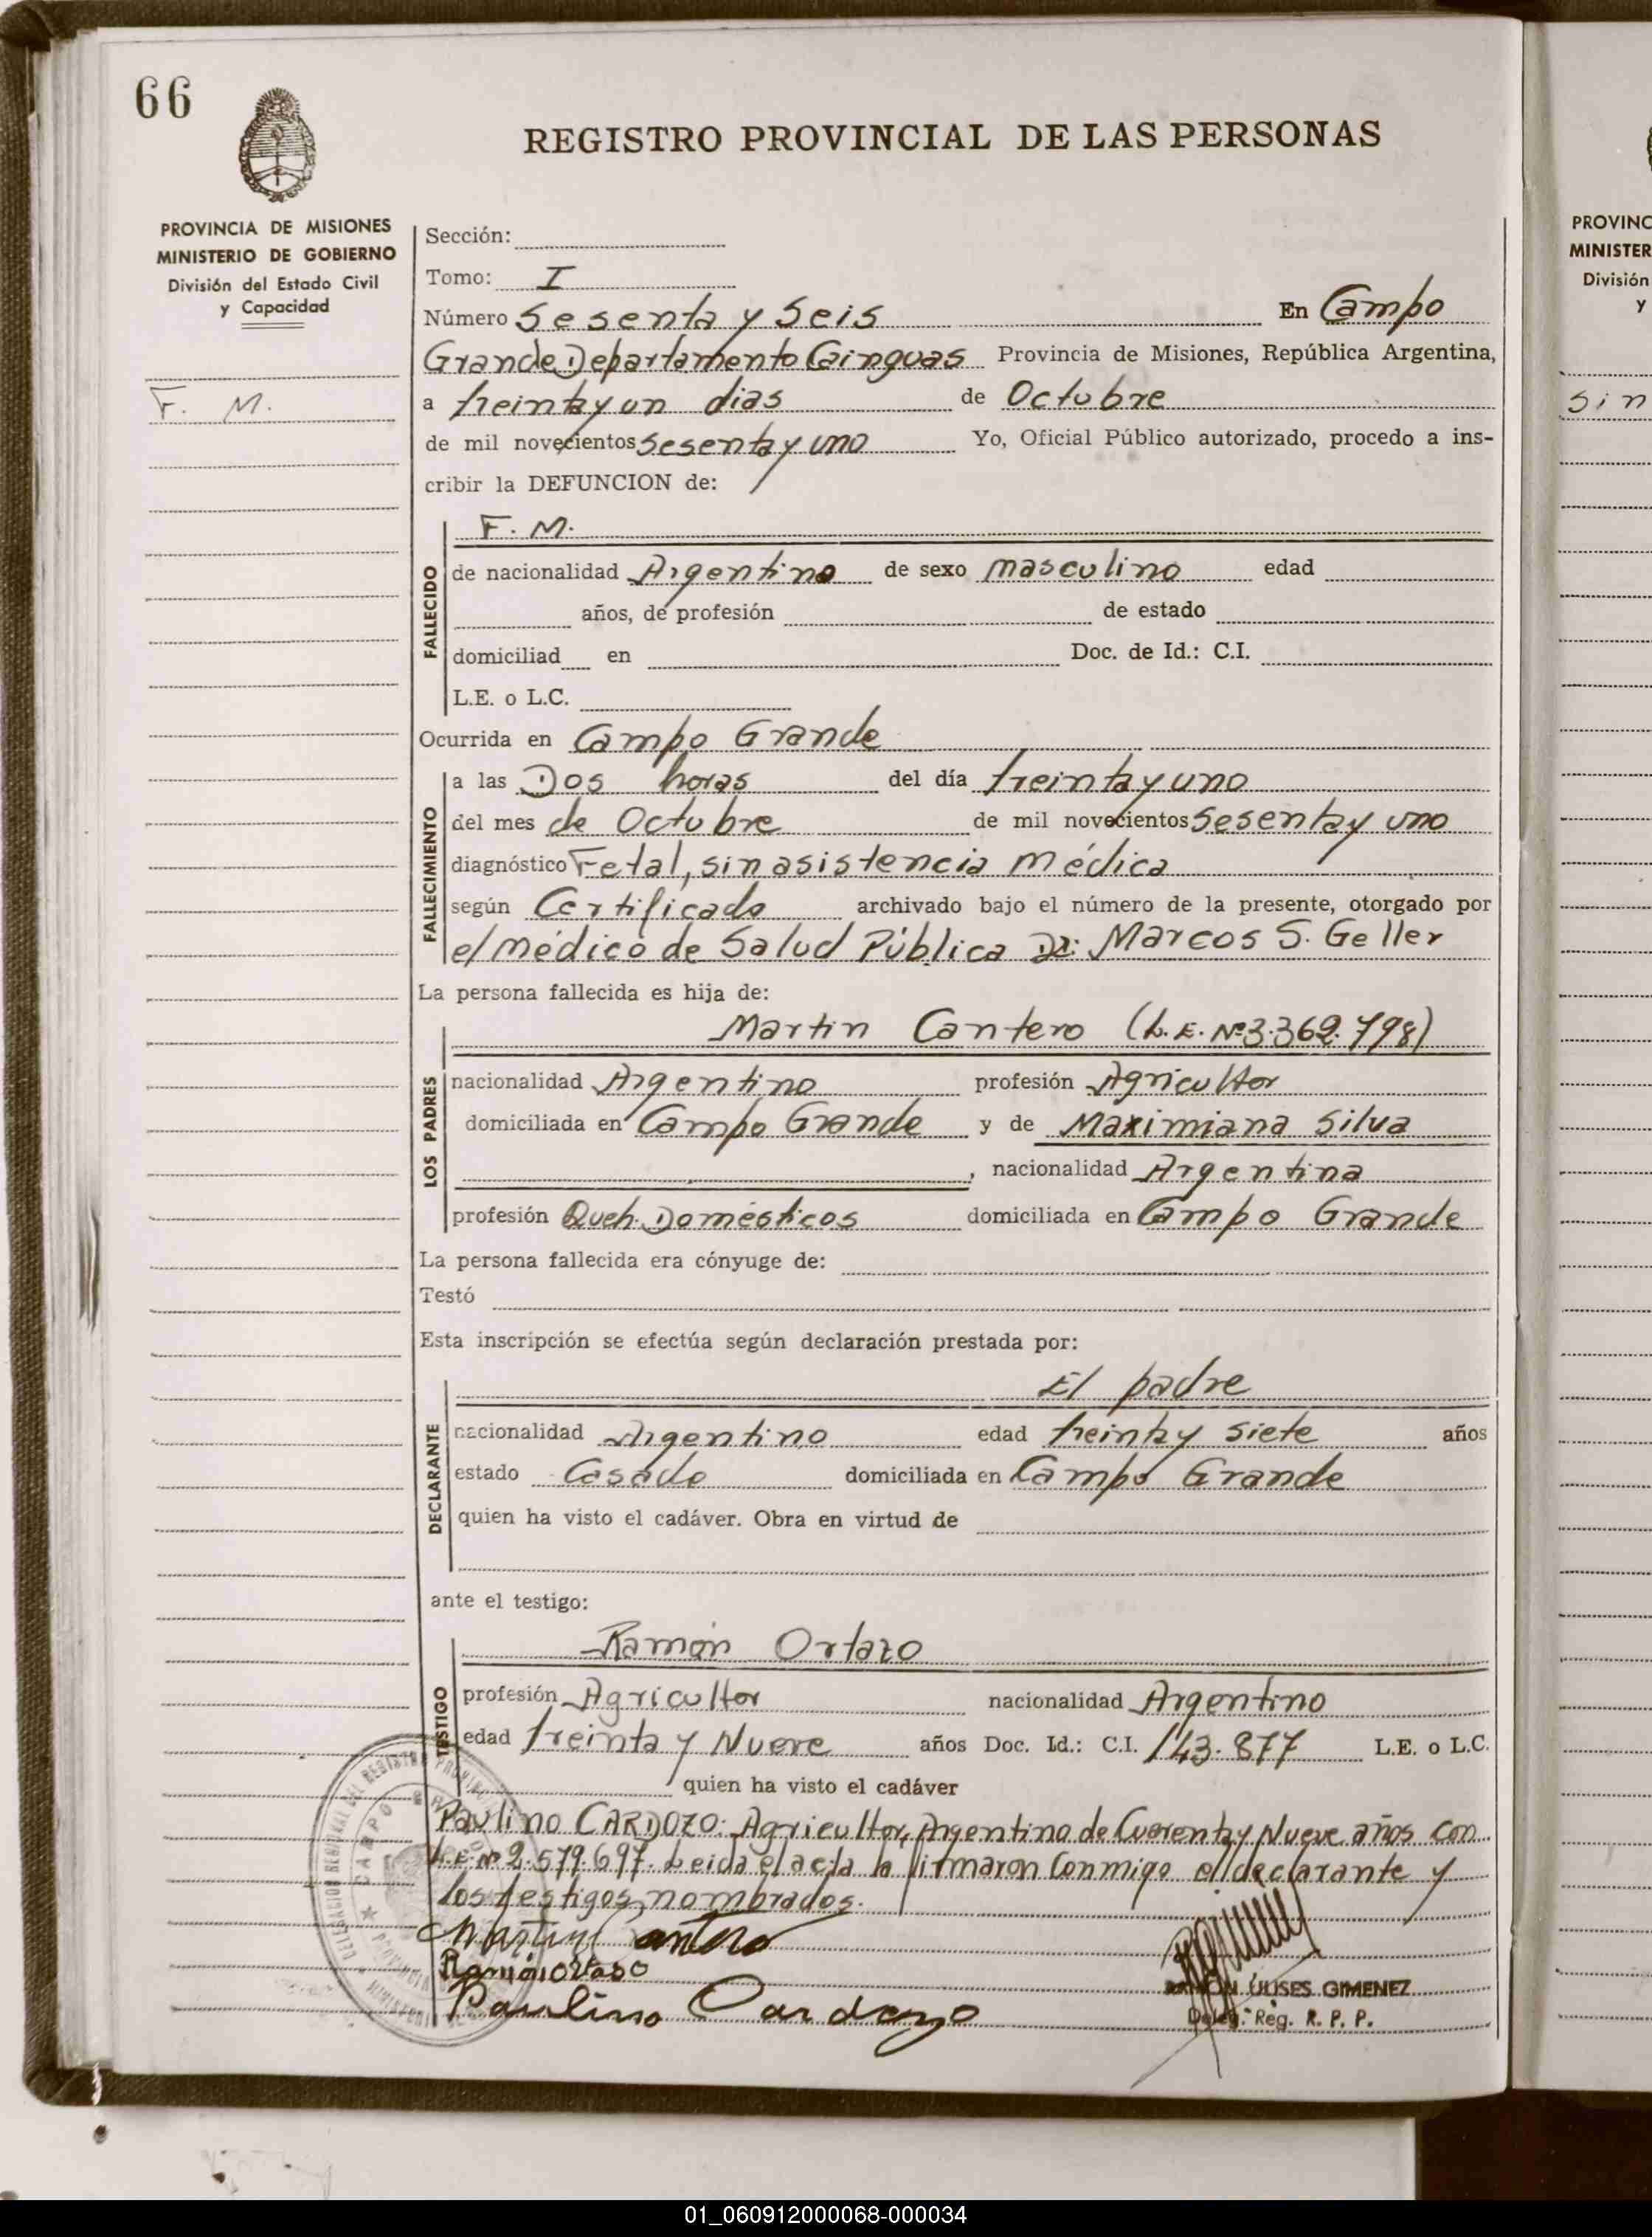 66
REGISTRO PROVINCIAL DE LAS PERSONAS
PROVINCIA DE MISIONES
MINISTERIO DE GOBIERNO
División del Estado Civil
y Capacidad
F. M.
Sección:
Tomo: I
Número Sesenta y Seis En Campo
Grande Departamento Cainguas Provincia de Misiones, República Argentina,
a treinta y un dias de Octubre
de mil novecientos Sesenta y uno Yo, Oficial Público autorizado, procedo a ins-
cribir la DEFUNCION de:
FALLECIDO
F. M.
de nacionalidad Argentino de sexo masculino edad
años, de profesión de estado
domiciliad en Doc. de Id.: C.I.
L.E. o L.C.
Ocurrida en Campo Grande
FALLECIMIENTO
a las Dos horas del día treinta y uno
del mes de Octubre de mil novecientos Sesenta y uno
diagnóstico Fetal, sin asistencia médica
según Certificado archivado bajo el número de la presente, otorgado por
el médico de Salud Pública Dr: Marcos S. Geller
La persona fallecida es hija de:
LOS PADRES
Martin Cantero (L.E. Nº 3.362.798)
nacionalidad Argentino profesión Agricultor
domiciliada en Campo Grande y de Maximiana Silva
, nacionalidad Argentina
profesión Queh. Domésticos domiciliada en Campo Grande
La persona fallecida era cónyuge de:
Testó
Esta inscripción se efectúa según declaración prestada por:
DECLARANTE
El padre
nacionalidad Argentino edad treinta y siete años
estado Casado domiciliada en Campo Grande
quien ha visto el cadáver. Obra en virtud de
ante el testigo:
TESTIGO
Ramón Ortazo
profesión Agricultor nacionalidad Argentino
edad treinta y Nueve años Doc. Id.: C.I. 143.877 L.E. o L.C.
quien ha visto el cadáver
Paulino CARDOZO: Agricultor, Argentino de Cuarenta y Nueve años con
L.E. Nº 2.579.697. Leida el acta la firmaron Conmigo el declarante y
los testigos nombrados.
Martin Cantero
Ramón
Paulino Cardozo
RAMÓN ÚLISES GIMENEZ
Deleg. Reg. R. P. P.
PROVINC
MINISTER
División
y
Sin
01_060912000068-000034